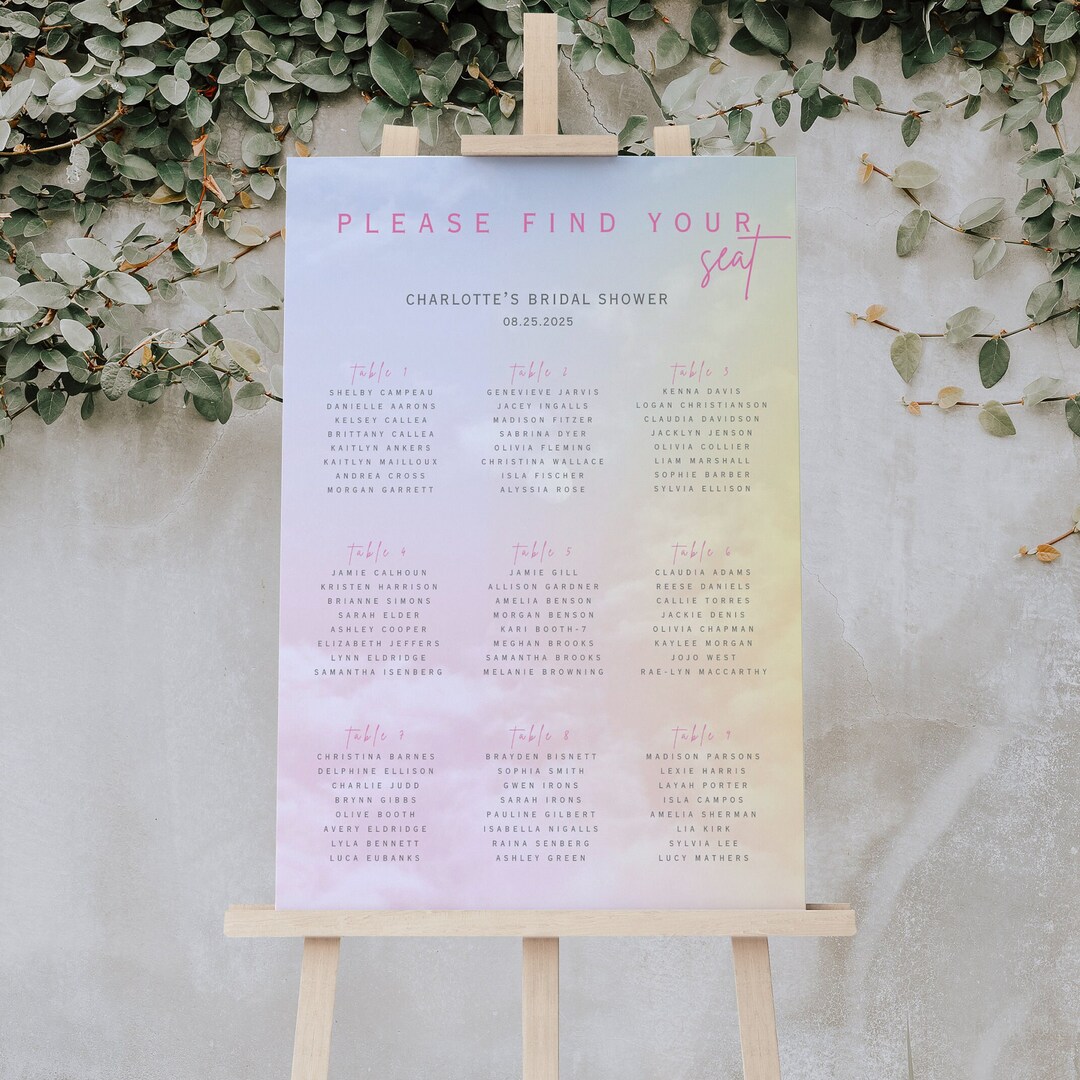 PLEASE FIND YOUR
seat
CHARLOTTE'S BRIDAL SHOWER
08.25.2025
table 1
SHELBY CAMPEAU
DANIELLE AARONS
KELSEY CALLEA
BRITTANY CALLEA
KAITLYN ANKERS
KAITLYN MAILLOUX
ANDREA CROSS
MORGAN GARRETT
table 2
GENEVIEVE JARVIS
JACEY INGALLS
MADISON FITZER
SABRINA DYER
OLIVIA FLEMING
CHRISTINA WALLACE
ISLA FISCHER
ALYSSIA ROSE
table 3
KENNA DAVIS
LOGAN CHRISTIANSON
CLAUDIA DAVIDSON
JACKLYN JENSON
OLIVIA COLLIER
LIAM MARSHALL
SOPHIE BARBER
SYLVIA ELLISON
table 4
JAMIE CALHOUN
KRISTEN HARRISON
BRIANNE SIMONS
SARAH ELDER
ASHLEY COOPER
ELIZABETH JEFFERS
LYNN ELDRIDGE
SAMANTHA ISENBERG
table 5
JAMIE GILL
ALLISON GARDNER
AMELIA BENSON
MORGAN BENSON
KARI BOOTH-7
MEGHAN BROOKS
SAMANTHA BROOKS
MELANIE BROWNING
table 6
CLAUDIA ADAMS
REESE DANIELS
CALLIE TORRES
JACKIE DENIS
OLIVIA CHAPMAN
KAYLEE MORGAN
JOJO WEST
RAE-LYN MACCARTHY
table 7
CHRISTINA BARNES
DELPHINE ELLISON
CHARLIE JUDD
BRYNN GIBBS
OLIVE BOOTH
AVERY ELDRIDGE
LYLA BENNETT
LUCA EUBANKS
table 8
BRAYDEN BISNETT
SOPHIA SMITH
GWEN IRONS
SARAH IRONS
PAULINE GILBERT
ISABELLA NIGALLS
RAINA SENBERG
ASHLEY GREEN
table 9
MADISON PARSONS
LEXIE HARRIS
LAYAH PORTER
ISLA CAMPOS
AMELIA SHERMAN
LIA KIRK
SYLVIA LEE
LUCY MATHERS